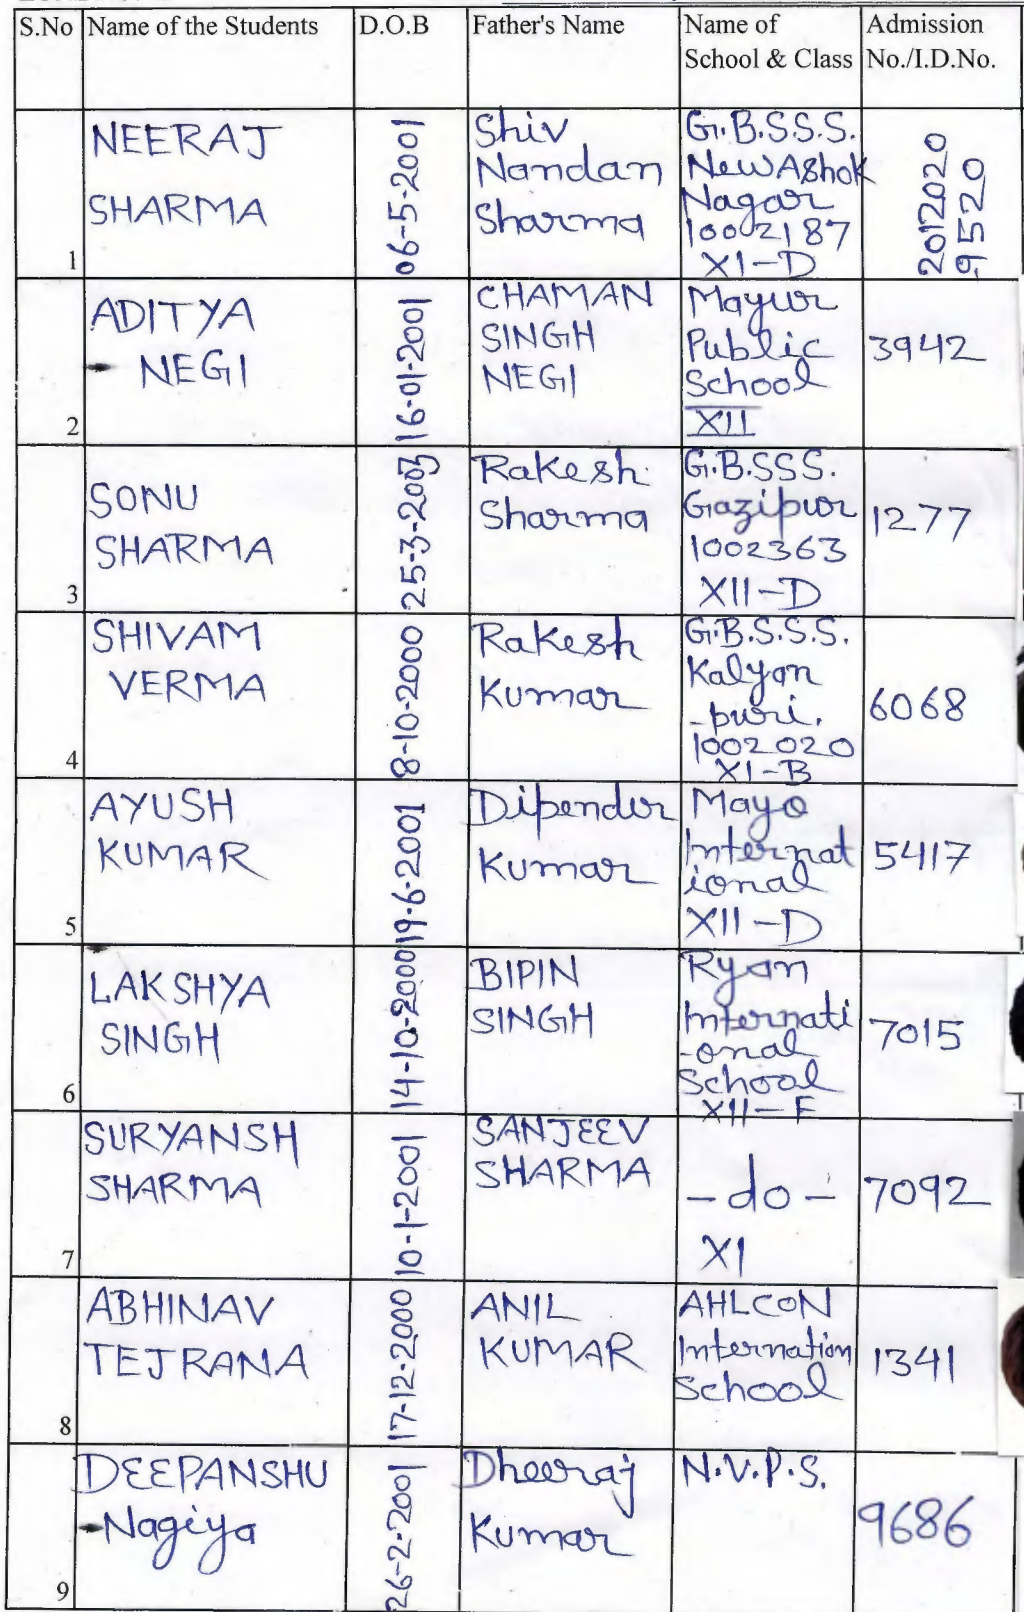 S.No Name of the Students D.O.B Father's Name Name of School & Class Admission No./I.D.No.
1 NEERAJ SHARMA 06-5-2001 Shiv Nandan Sharma G.B.S.S.S. New Ashok Nagar 1002187 XI-D 2012020 9520
2 ADITYA NEGI 16-01-2001 CHAMAN SINGH NEGI Mayur Public School XII 3942
3 SONU SHARMA 25-3-2003 Rakesh Sharma G.B.SSS. Gazipur 1002363 XII-D 1277
4 SHIVAM VERMA 8-10-2000 Rakesh Kumar G.B.S.S.S. Kalyan -puri. 1002020 XI-B 6068
5 AYUSH KUMAR 19-6-2001 Dipender Kumar Mayo Internat ional XII-D 5417
6 LAKSHYA SINGH 14-10-2000 BIPIN SINGH Ryan Internati -onal School XII-F 7015
7 SURYANSH SHARMA 10-1-2001 SANJEEV SHARMA -do- XI 7092
8 ABHINAV TEJRANA 17-12-2000 ANIL KUMAR AHLCON Internation School 1341
9 DEEPANSHU Nagiya 26-2-2001 Dheeraj Kumar N.V.P.S. 9686